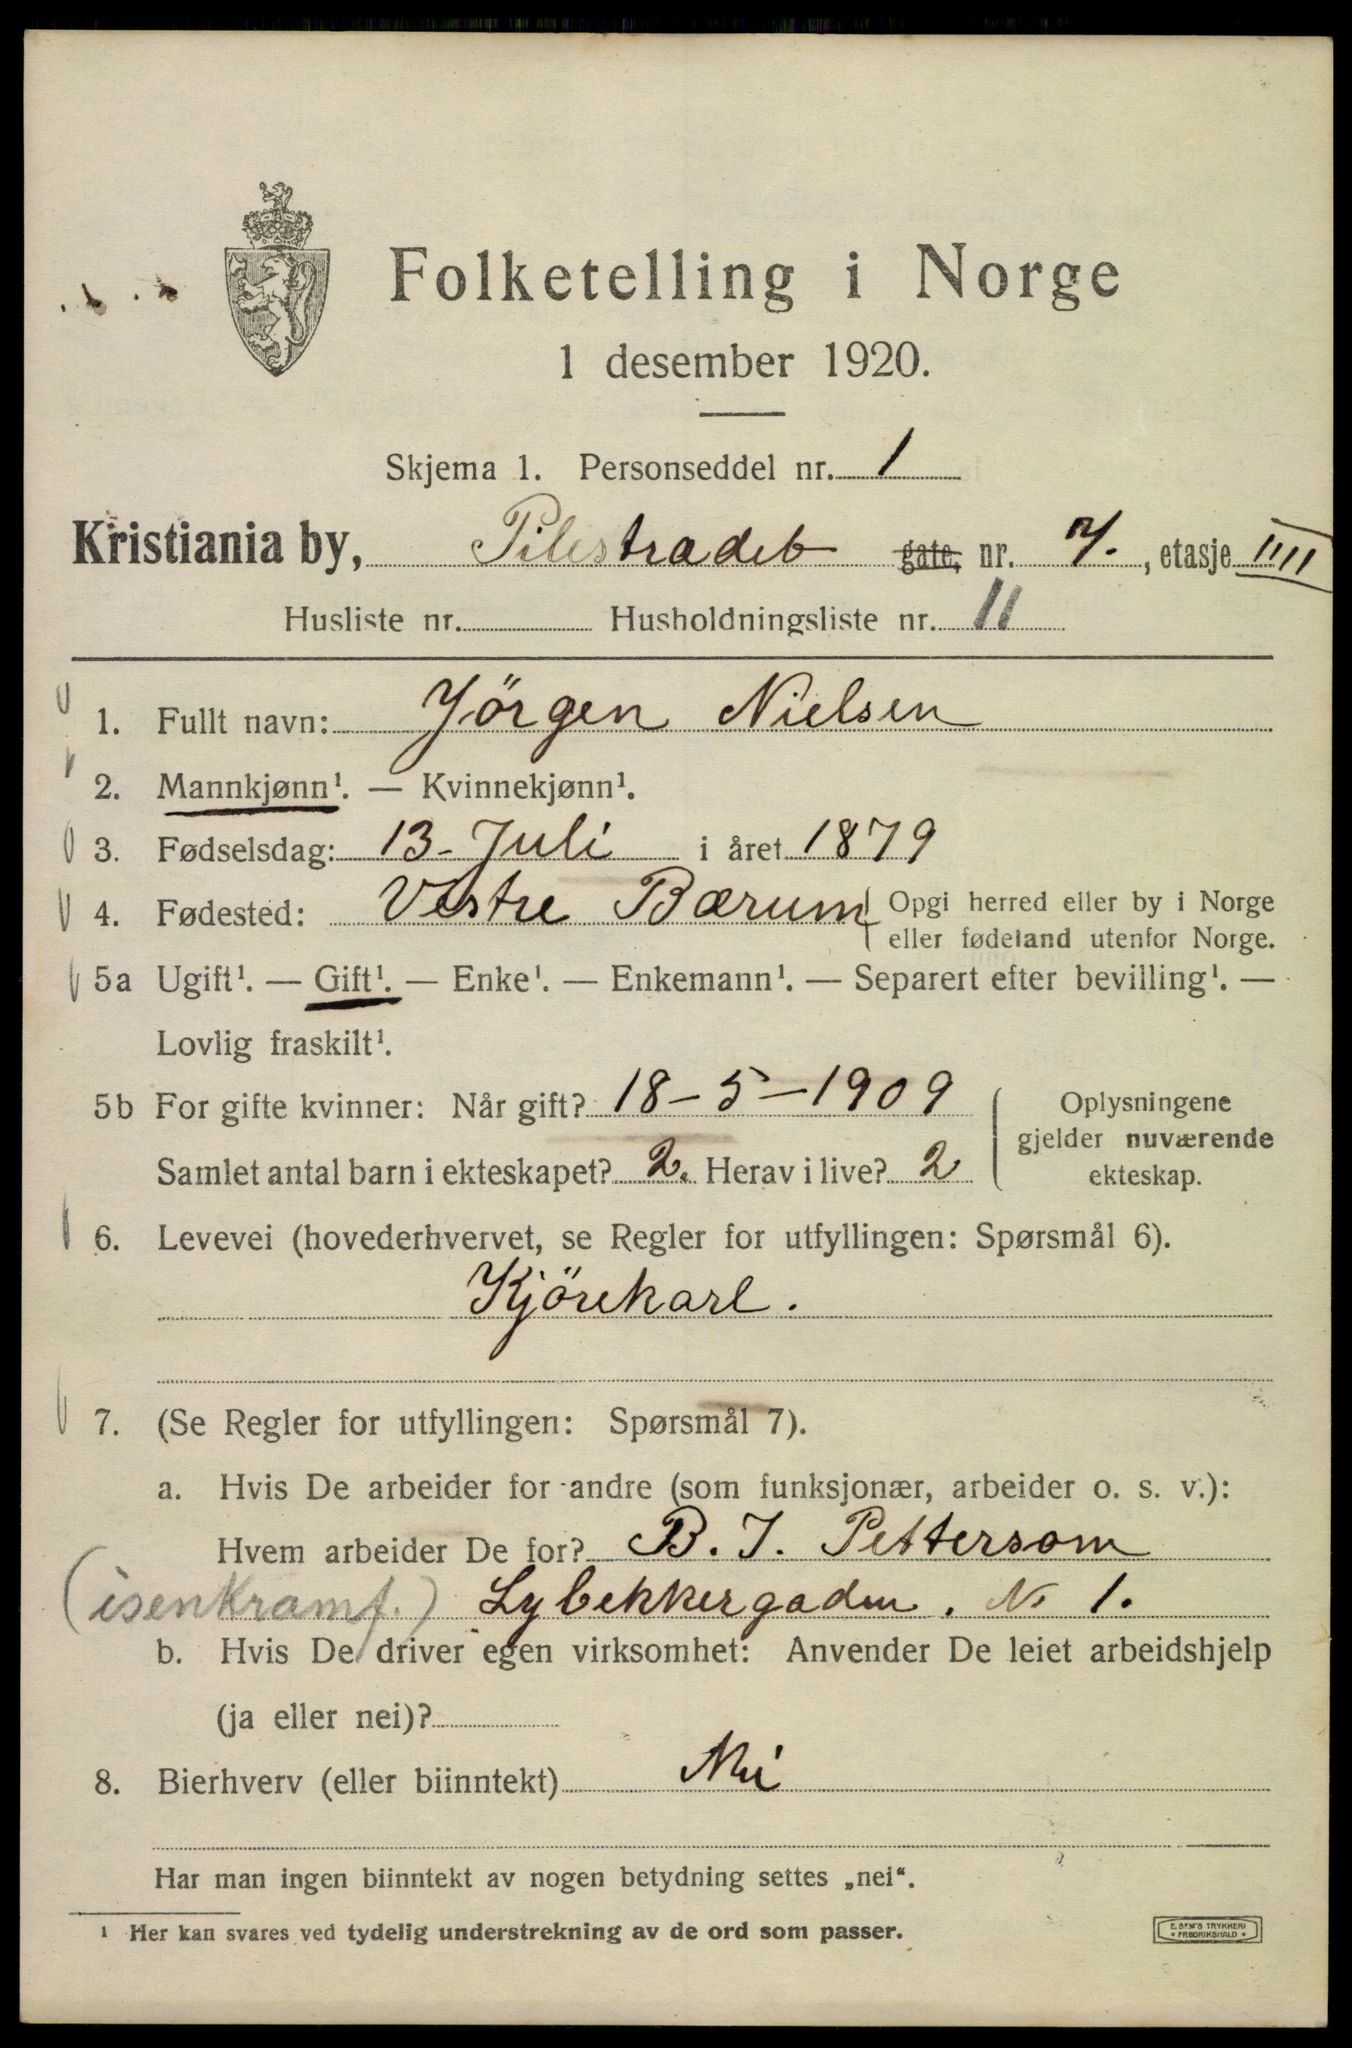 Folketelling i Norge
1 desember 1920.
Skjema 1. Personseddel nr. 1
Kristiania by, Pilestradet gate, nr. 7. , etasje IIII
Husliste nr. Husholdningsliste nr. 11
1. Fullt navn: Jörgen Nielsen
2. Mannkjønn¹. — Kvinnekjønn¹.
3. Fødselsdag: 13- Juli i året 1879
4. Fødested: Vestre Bærum Opgi herred eller by i Norge
eller fødeland utenfor Norge.
5a Ugift¹. — Gift¹. — Enke¹. — Enkemann¹. — Separert efter bevilling¹. —
Lovlig fraskilt¹.
5b For gifte kvinner: Når gift? 18-5-1909 Oplysningene
gjelder nuværende
Samlet antal barn i ekteskapet? 2. Herav i live? 2 ekteskap.
6. Levevei (hovederhvervet, se Regler for utfyllingen: Spørsmål 6).
Kjörekarl.
7. (Se Regler for utfyllingen: Spørsmål 7).
a. Hvis De arbeider for andre (som funksjonær, arbeider o. s. v.):
Hvem arbeider De for? B. J. Petterson
(isenkramf.) Lybekkergaden. N. 1.
b. Hvis De driver egen virksomhet: Anvender De leiet arbeidshjelp
(ja eller nei)?
8. Bierhverv (eller biinntekt) Nei
Har man ingen biinntekt av nogen betydning settes „nei“.
¹ Her kan svares ved tydelig understrekning av de ord som passer.
E. SEM'S TRYKKERI
FREDRIKSHALD